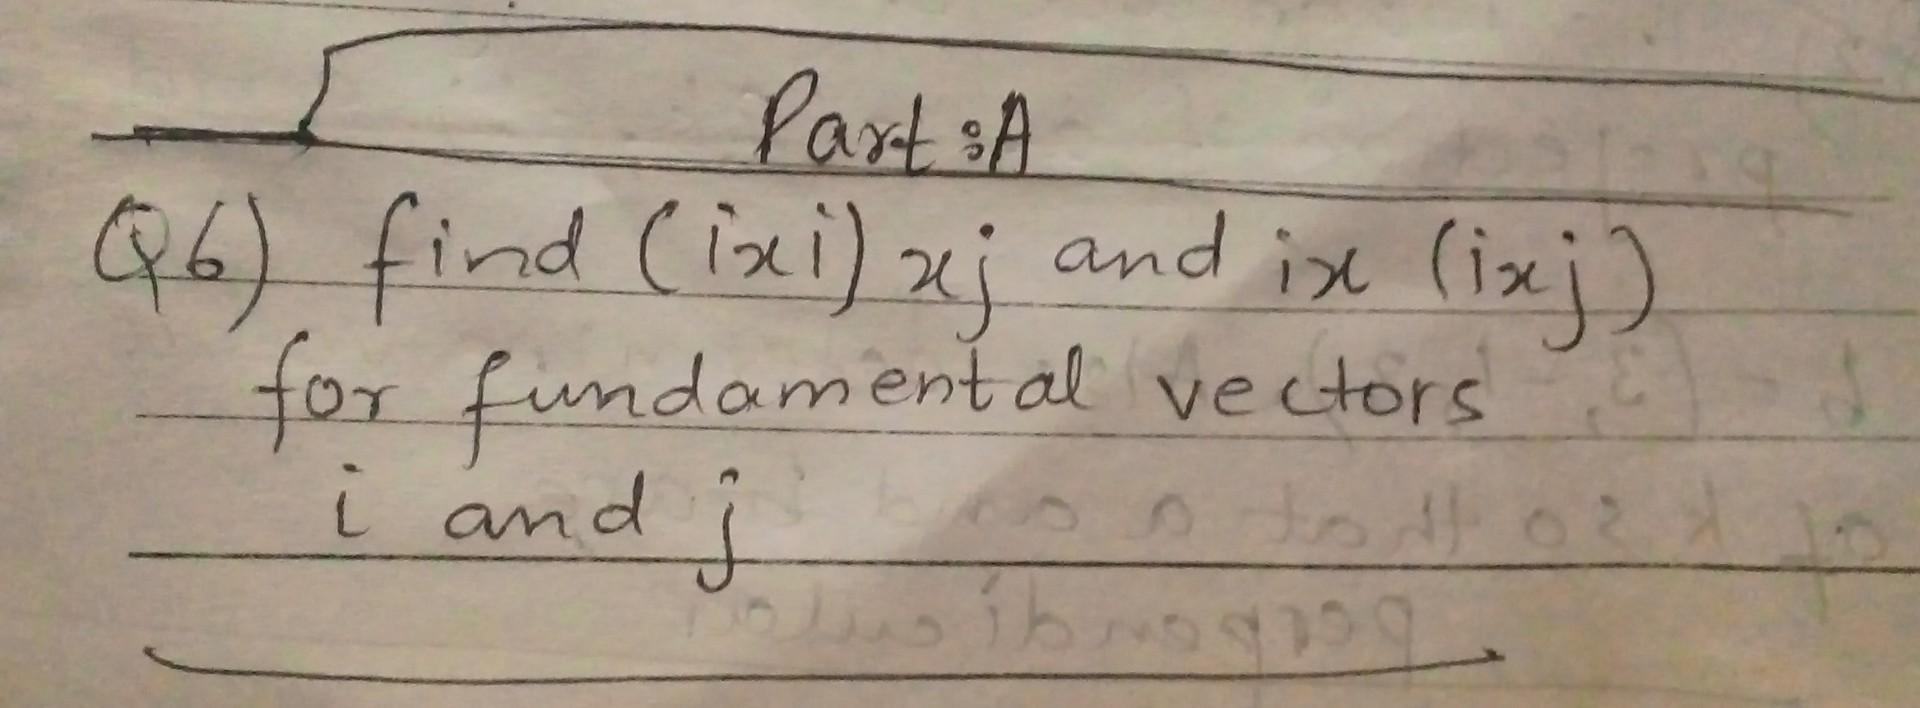 Part:A
Q6) find (ixi) xj and ix (ixj)
for fundamental vectors
i and j